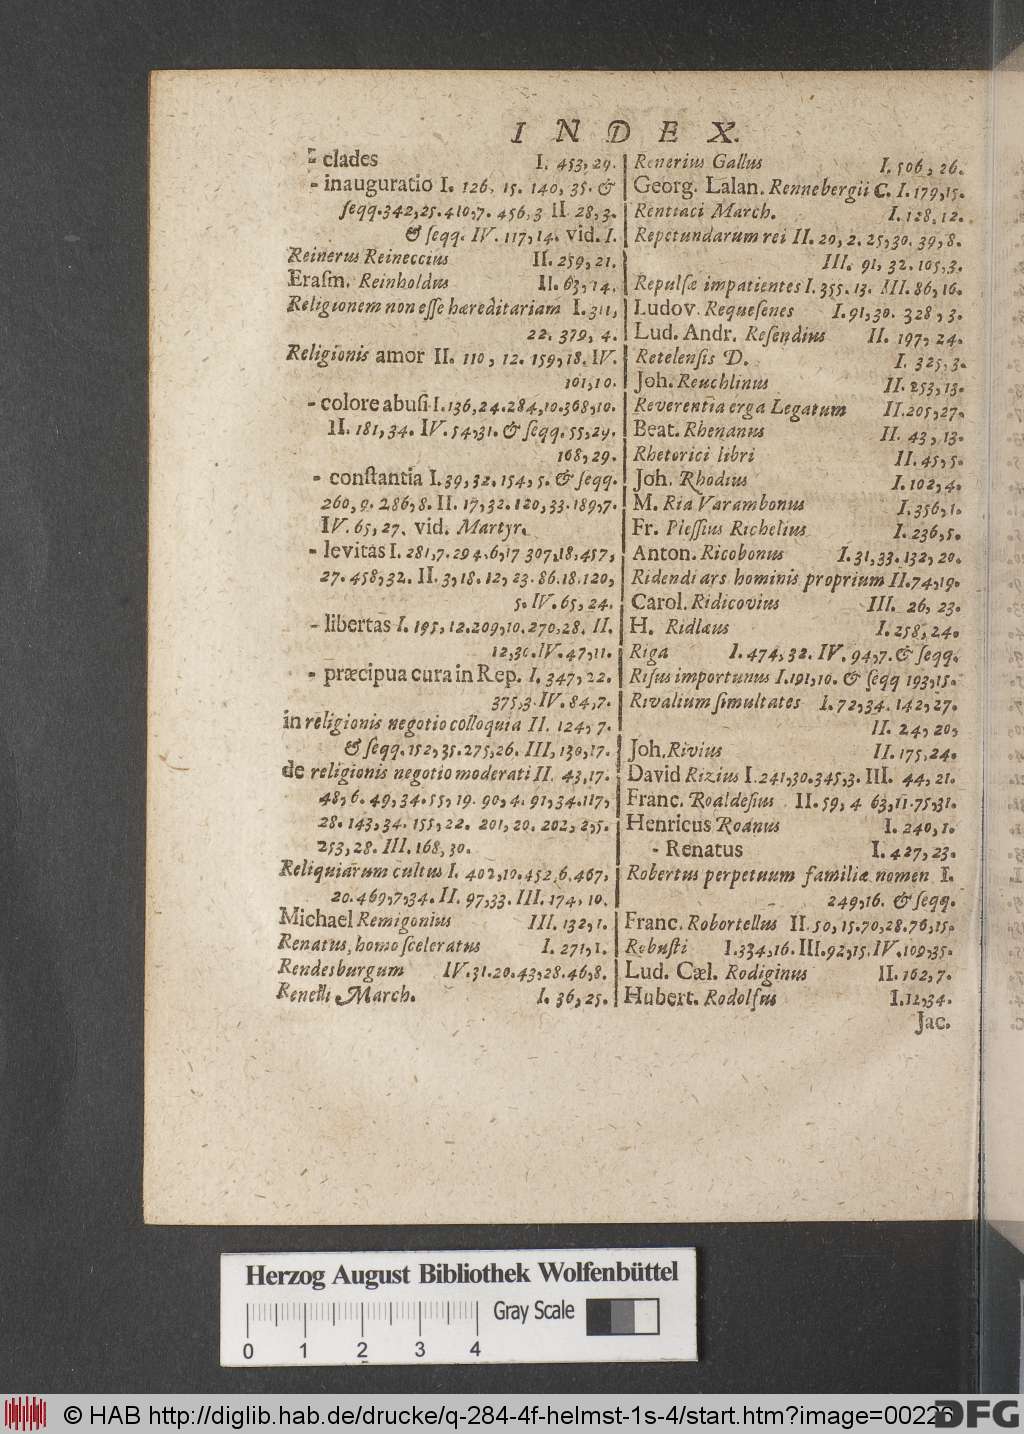 INDEX.
- clades I. 453, 29.
- inauguratio I. 126, 15. 140, 35. &
ſeqq. 342, 25. 410, 7. 456, 3 II 28, 3.
& ſeqq. IV. 117, 14. vid. I.
Reinerus Reineccius II. 259, 21.
Eraſm. Reinholdus II. 63, 14.
Religionem non eſſe hæreditariam I. 311,
22. 379, 4.
Religionis amor II. 110, 12. 159, 18. IV.
101, 10.
- colore abuſi I. 136, 24. 284, 10. 368, 10.
II. 181, 34. IV. 54, 31. & ſeqq. 55, 29.
168, 29.
- conſtantia I. 39, 32. 154, 5. & ſeqq.
260, 9. 286, 8. II. 17, 32. 120, 33. 189, 7.
IV. 65, 27. vid. Martyr.
- levitas I. 281, 7. 294, 6, 17 307, 18, 457,
27. 458, 32. II. 3, 18. 12, 23. 86. 18. 120,
5. IV. 65, 24.
- libertas I. 195, 12. 209, 10. 270, 28. II.
12, 30. IV. 47, 11.
- præcipua cura in Rep. I. 347, 22.
375, 3. IV. 84, 7.
in religionis negotio colloquia II. 124, 7.
& ſeqq. 152, 35. 275, 26. III, 130, 17.
de religionis negotio moderati II. 43, 17.
48, 6. 49, 34. 55, 19. 90, 4. 91, 34. 117,
28. 143, 34. 155, 22. 201, 20. 202, 2, 5.
253, 28. III. 168, 30.
Reliquiarum cultus I. 402, 10. 452, 6. 467,
20. 469, 7, 34. II. 97, 33. III. 174, 10.
Michael Remigonius III. 132, 1.
Renatus, homo ſceleratus I. 271, 1.
Rendesburgum IV. 31. 20. 43, 28. 46, 8.
Renelli March. I. 36, 25.
Renerius Gallus I. 506, 26.
Georg. Lalan. Rennebergii C. I. 179, 15.
Rentiaci March. I. 128, 12.
Repetundarum rei II. 20, 2. 25, 30. 39, 8.
III. 91, 32. 105, 3.
Repulſæ impatientes I. 355. 13. III. 86, 16.
Ludov. Requeſenes I. 91, 30. 328, 3.
Lud. Andr. Reſendius II. 197, 24.
Retelenſis D. I. 325, 3.
Joh. Reuchlinus II. 253, 13.
Reverentia erga Legatum II. 205, 27.
Beat. Rhenanus II. 43, 13.
Rhetorici libri II. 45, 5.
Joh. Rhodius I. 102, 4.
M. Ria Varambonus I. 356, 1.
Fr. Pleſſius Richelius I. 236, 5.
Anton. Ricobonus I. 31, 33. 132, 20.
Ridendi ars hominis proprium II. 74, 19.
Carol. Ridicovius III. 26, 23.
H. Ridlæus I. 258, 24.
Riga I. 474, 32. IV. 94, 7. & ſeqq.
Riſus importunus I. 191, 10. & ſeqq 193, 15.
Rivalium ſimultates I. 72, 34. 142, 27.
II. 24, 20,
Joh. Rivius II. 175, 24.
David Rizius I. 241, 30. 345, 3. III. 44, 21.
Franc. Roaldeſius II. 59, 4 63, 11. 75, 31.
Henricus Roanus I. 240, 1.
- Renatus I. 427, 23.
Robertus perpetuum familiæ nomen I.
249, 16. & ſeqq.
Franc. Robortellus II. 50, 15. 70, 28. 76, 15.
Robuſti I. 334, 16. III. 92, 15. IV. 109, 35.
Lud. Cæl. Rodiginus II. 162, 7.
Hubert. Rodolfus I. 12, 34.
Jac.
Herzog August Bibliothek Wolfenbüttel
Gray Scale
0 1 2 3 4
© HAB http://diglib.hab.de/drucke/q-284-4f-helmst-1s-4/start.htm?image=00226
DFG